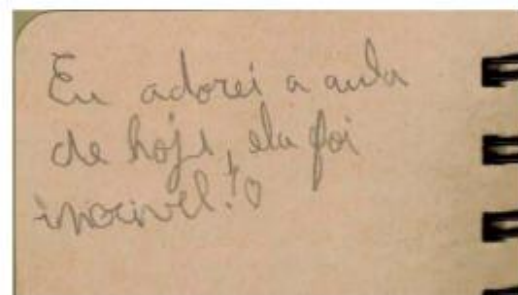 Eu adorei a aula
de hoje, ela foi
incrivel!♡